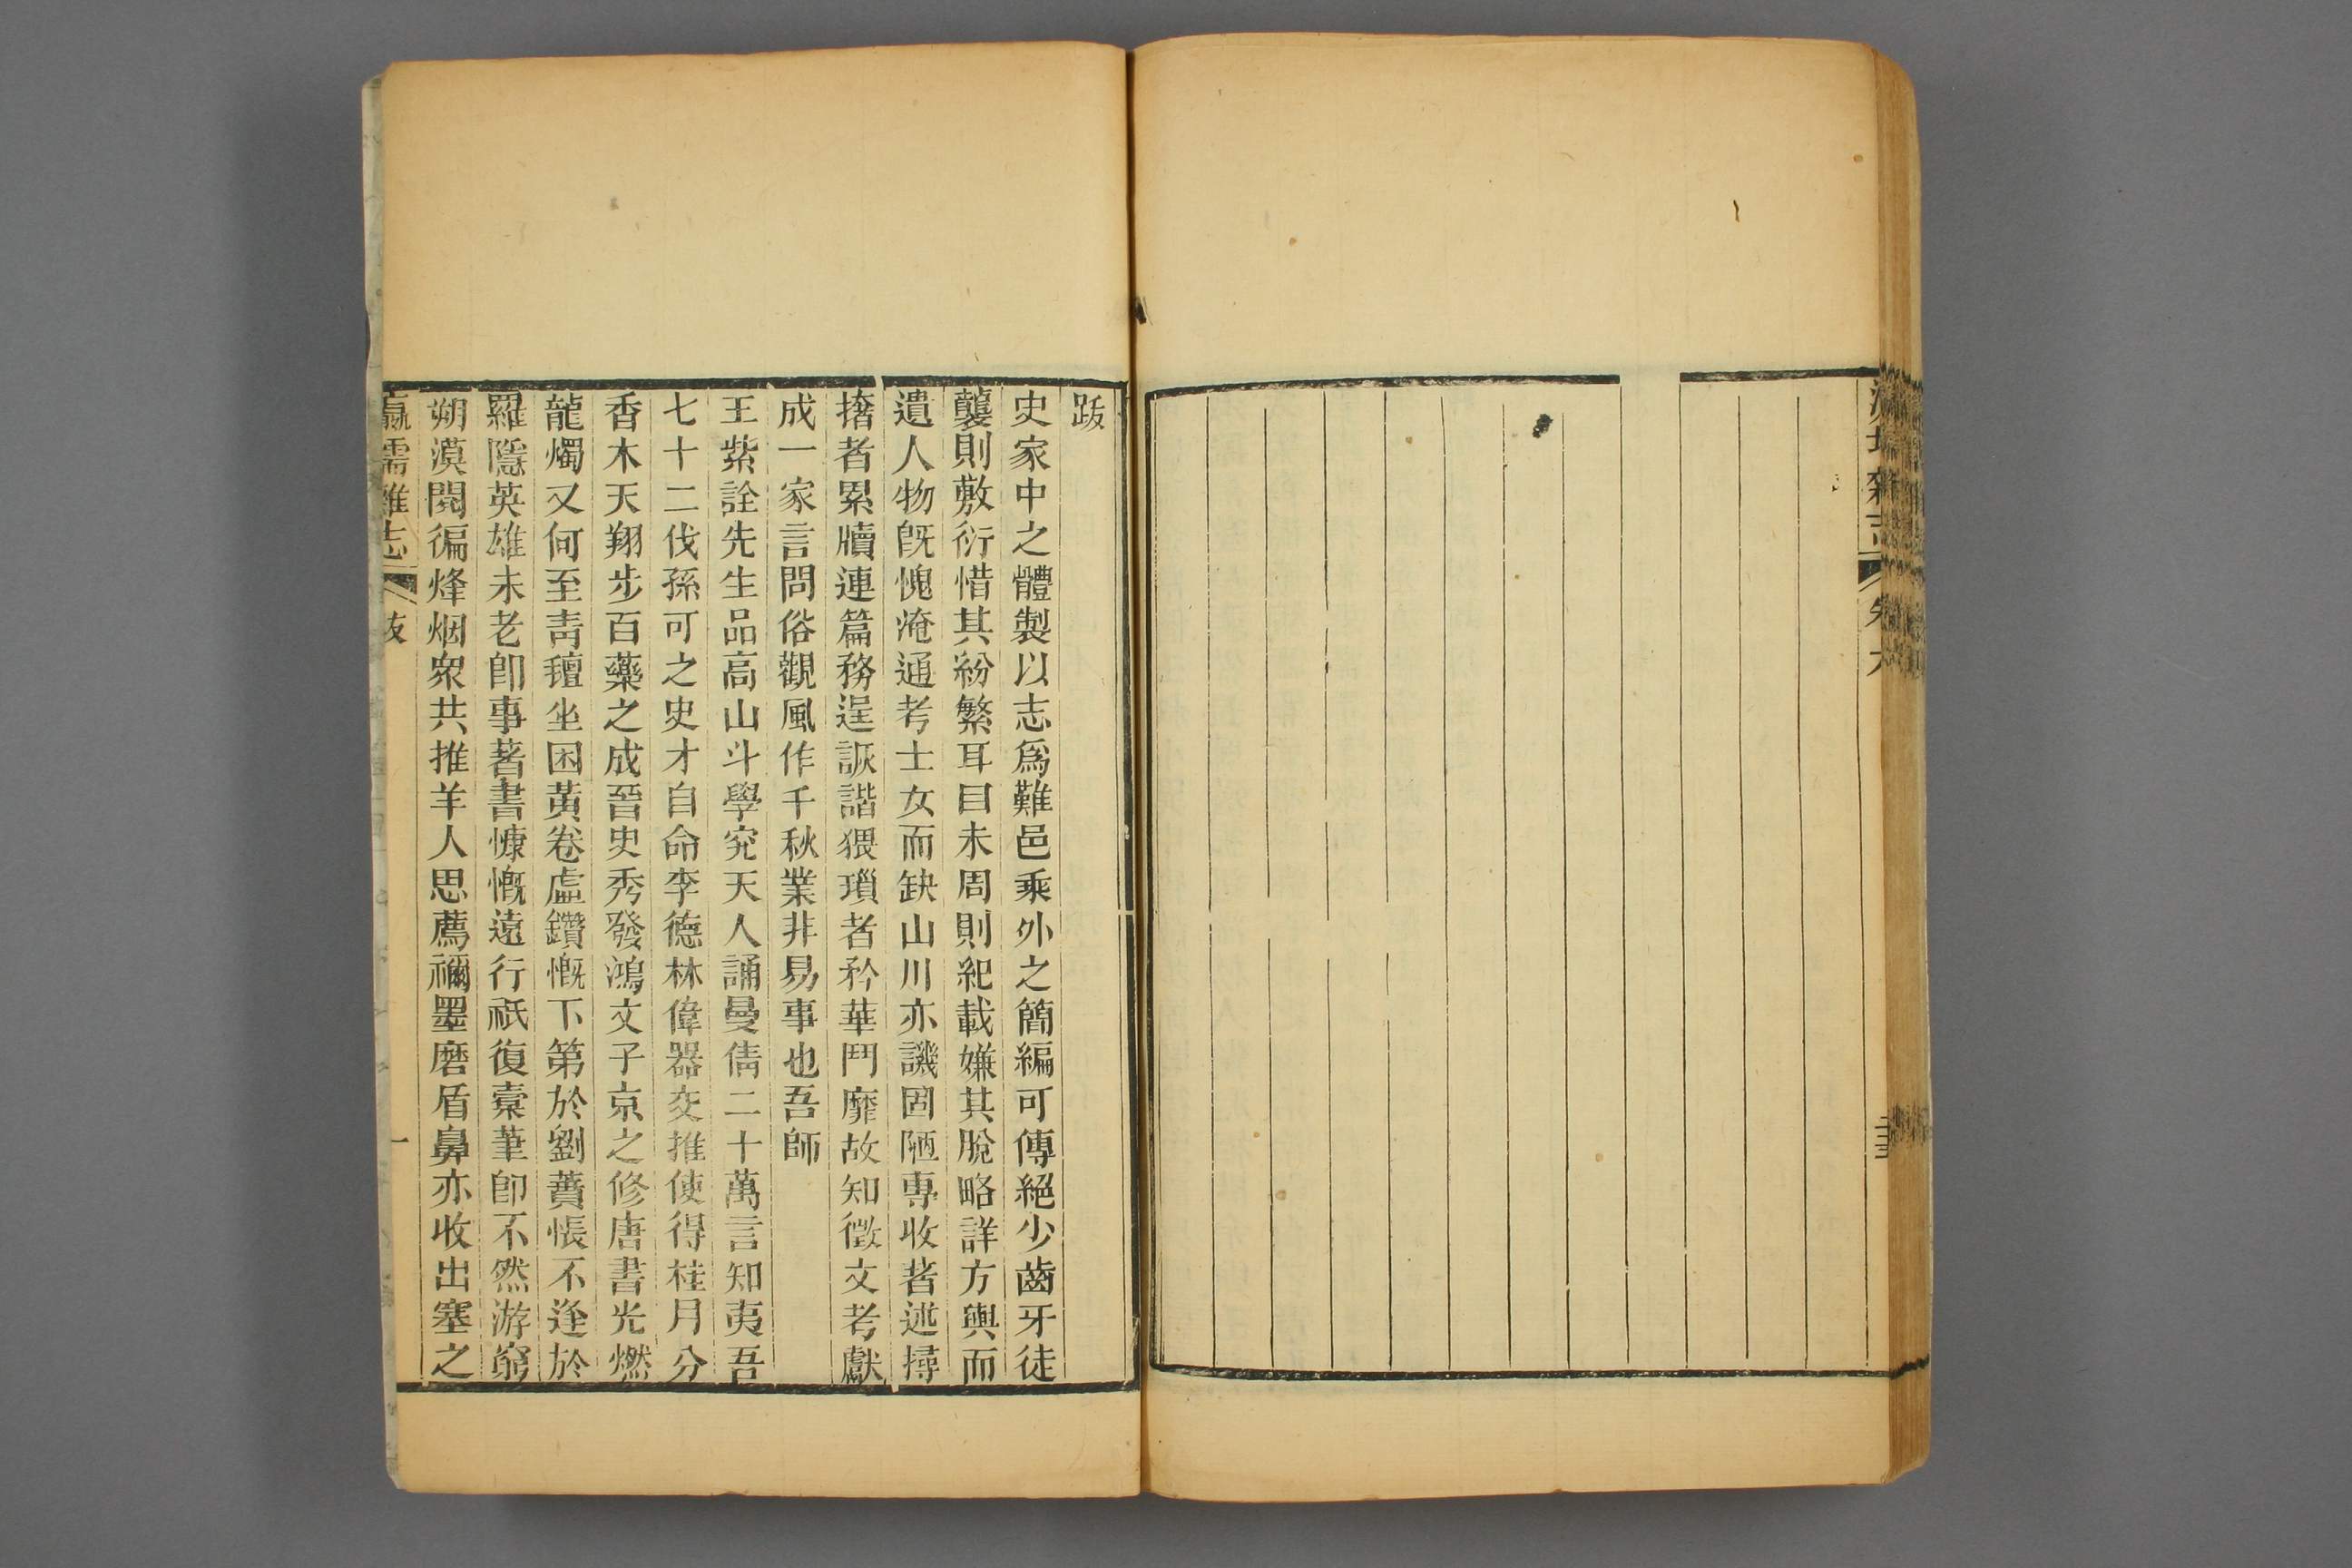 卷六
跋
史家中之體製以志爲難邑乘外之簡編可傳絕少齒牙徒
襲則敷衍惜其紛繁耳目未周則紀載嫌其脫略詳方輿而
遺人物旣愧淹通考士女而缺山川亦譏固陋專收者遞撏
撦者累牘連篇務逞詼諧猥瑣者矜華鬥靡故知徵文考獻
成一家言問俗觀風作千秋業非易事也吾師
王紫詮先生品高山斗學究天人誦曼倩二十萬言知夷吾
七十二伐孫可之史才自命李德林偉器交推使得桂月分
香木天翔步百藥之成晉史秀發鴻文子京之修唐書光燃
龍燭又何至靑氊坐困黃卷虛鑽慨下第於劉蕡悵不逢於
羅隱英雄未老卽事著書慷慨遠行祇復橐筆卽不然游窮
朔漠閱徧烽烟衆共推羊人思薦禰墨磨盾鼻亦收出塞之
瀛壖雜志
跋
一